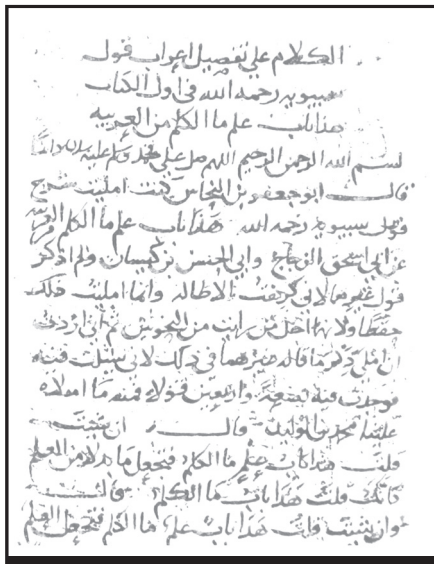 الكلام علي تفصيل اعراب قول
سيبويه رحمه الله في اول الكتاب
هذا باب علم ما الكلم من العربيه
بسم الله الرحمن الرحيم اللهم صل علي محمد وسلم عليه
قال ابو جعفر بن النحاس كنت امليت شرح
قول سيبويه رحمه الله هذا باب علم ما الكلم من العربيه
عن ابي اسحق الزجاج وابي الحسن بن كيسان ولم اذكر
قول غيرهما لاني كرهت الاطاله وانما امليت ذلك
حفظا ولانهما اجل من رايت من النحويين ثم اني اردت
ان املي ذكر ما قاله غيرهما في ذلك لاني سيلت فيه
فوجدت فيه بضعة واربعين قولا فمنه ما املاه
علينا محمد بن الوليد قال ان شيت
قلت هذا باب علم ما الكلم فتجعل ما بدلا من العلم
كانك قلت هذا باب ما الكلم قال
وان شيت قلت هذا باب علم ما الكلم فتجعل العلم